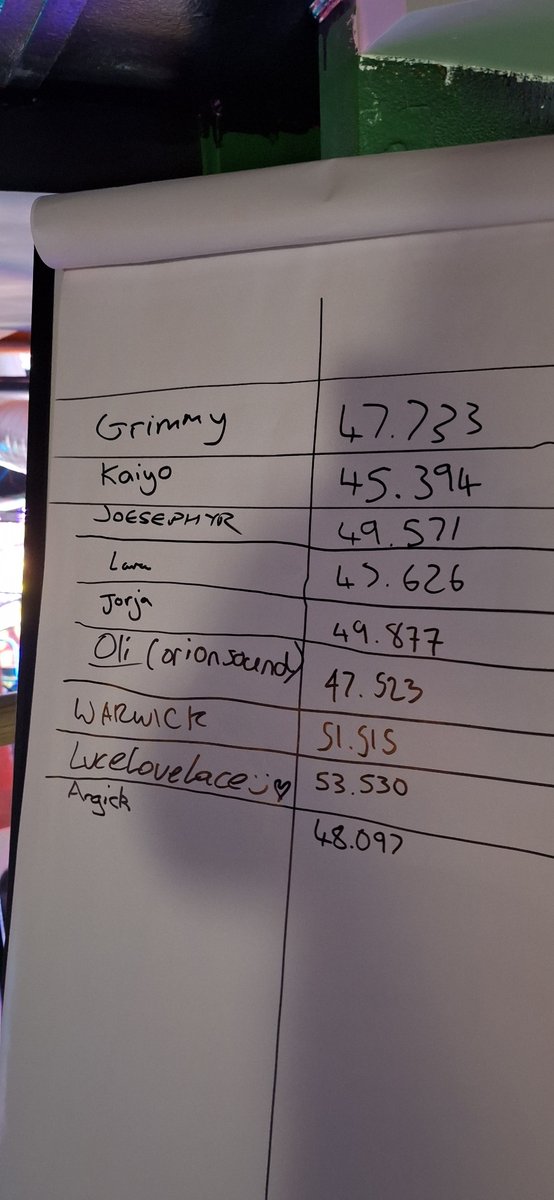 Grimmy 47.733
Kaiyo 45.394
JOESEPHYR 49.571
Lara 45.626
Jorja 49.877
Oli (orionsound) 47.523
WARWICK 51.515
Lucelovelace :) ♡ 53.530
Argick 48.097